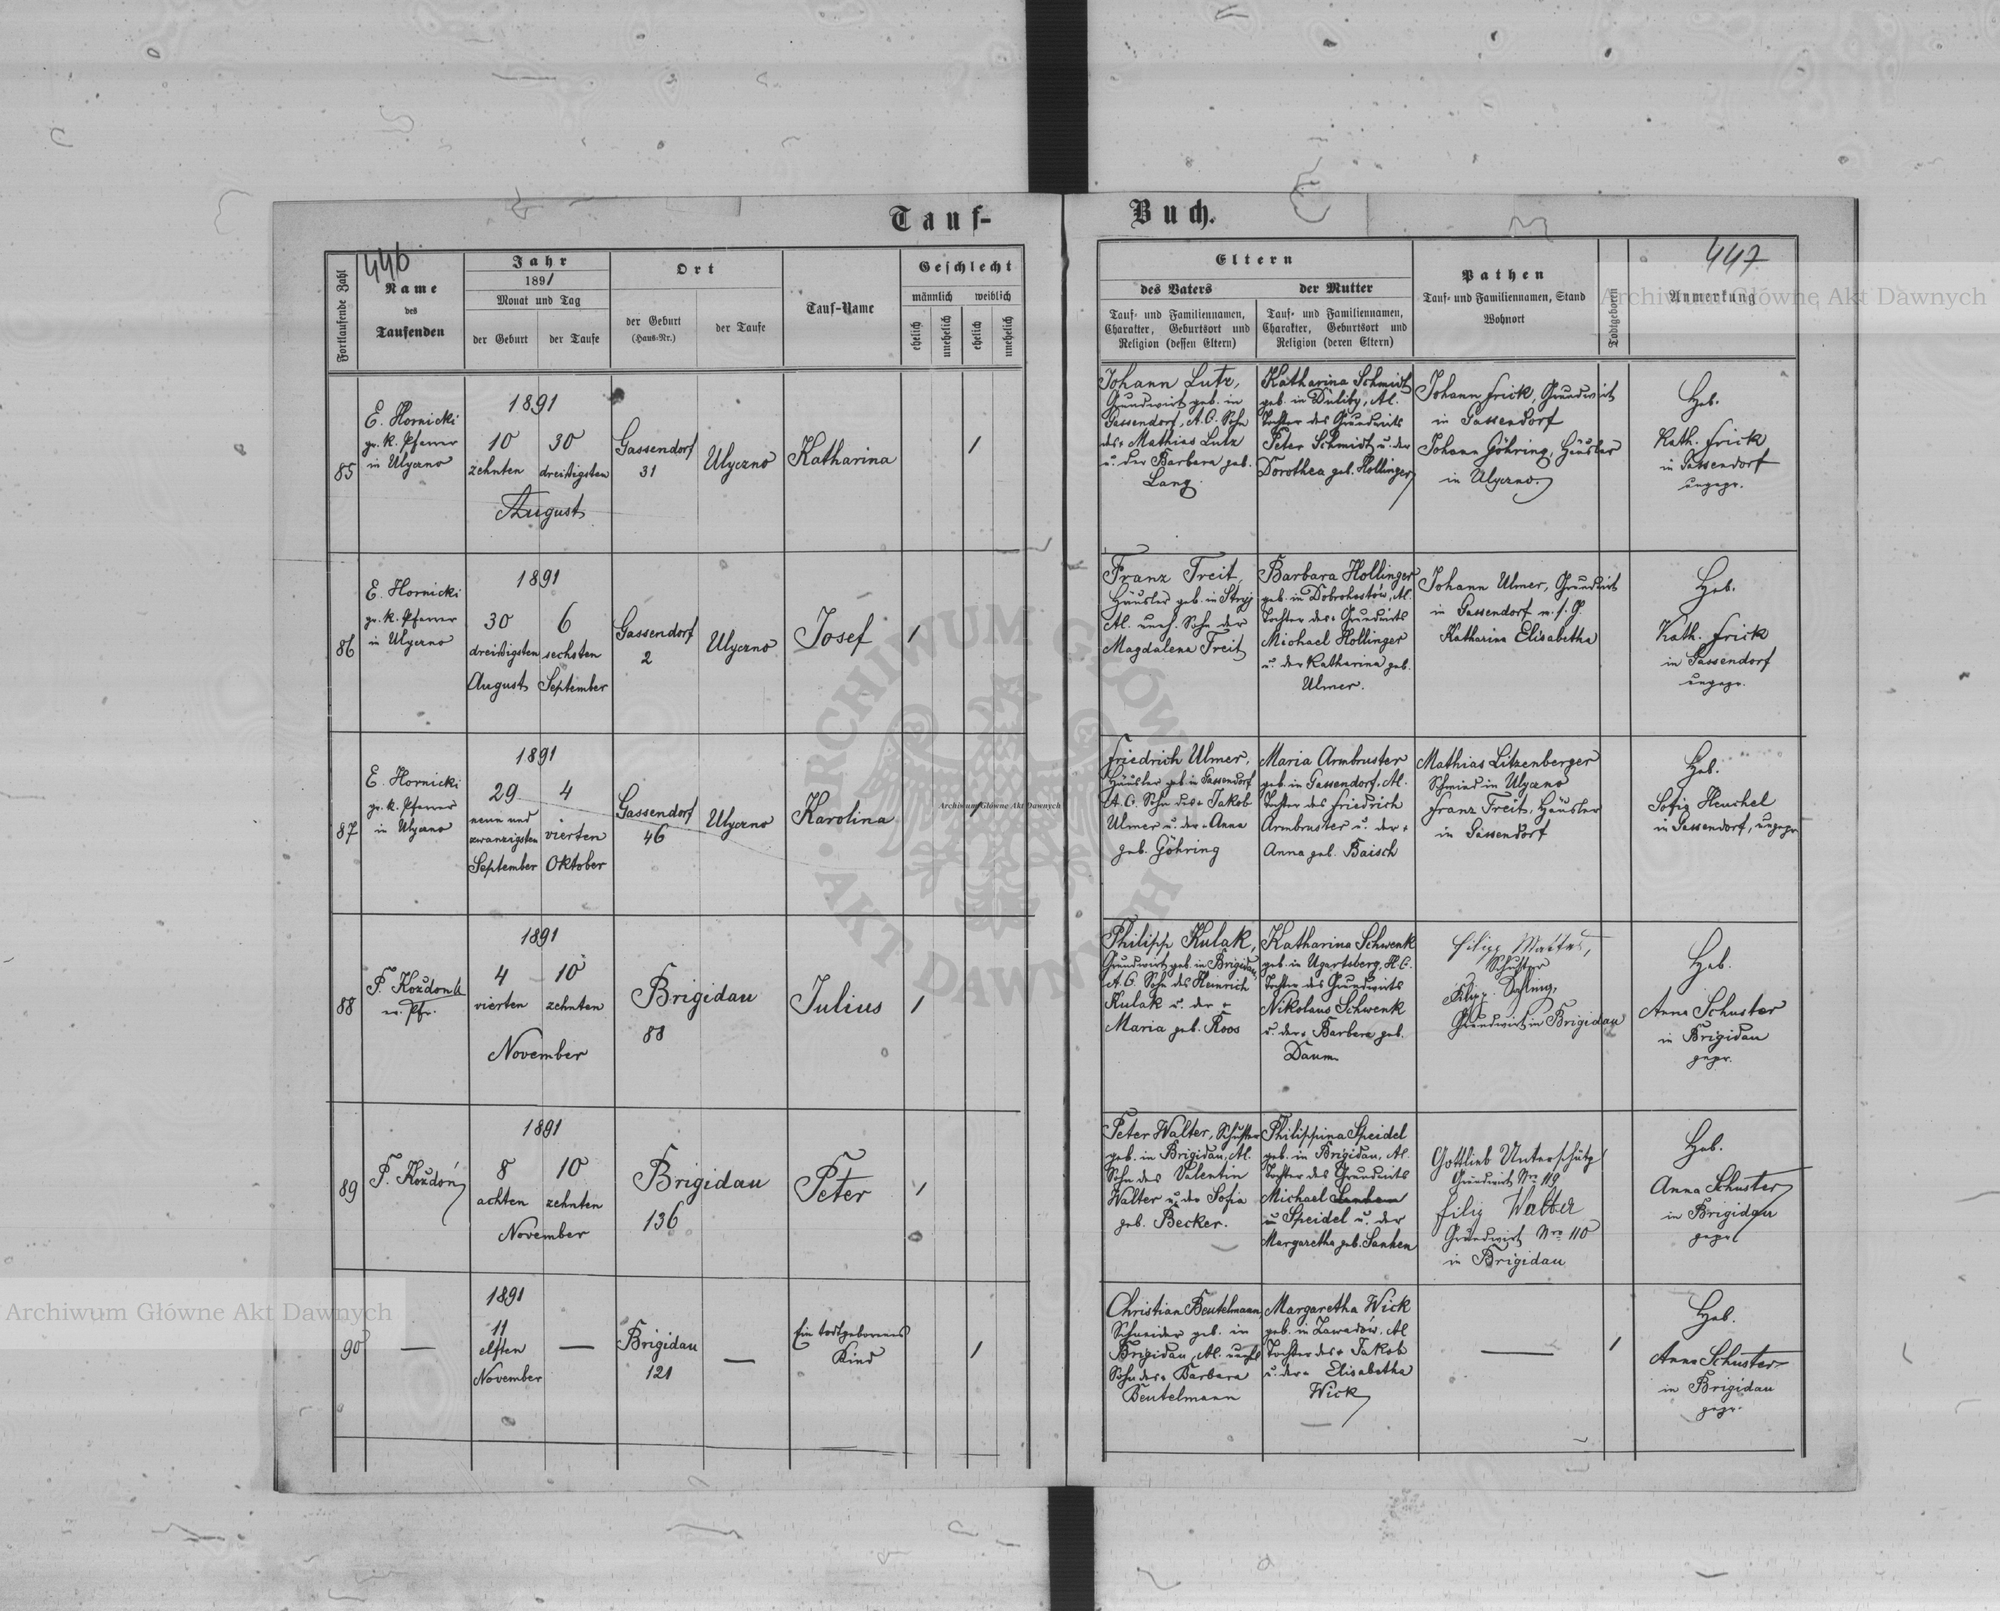 Tauf-
Buch.
446
447
Fortlaufende Zahl
Name
des
Taufenden
Jahr
1891
Monat und Tag
der Geburt
der Taufe
Ort
der Geburt
(Haus-Nr.)
der Taufe
Tauf-Name
Geschlecht
männlich
weiblich
ehelich
unehelich
ehelich
unehelich
Eltern
des Vaters
der Mutter
Tauf- und Familiennamen,
Charakter, Geburtsort und
Religion (dessen Eltern)
Tauf- und Familiennamen,
Charakter, Geburtsort und
Religion (deren Eltern)
Pathen
Tauf- und Familiennamen, Stand
Wohnort
Todtgeboren
Anmerkung
85
E. Hornicki
gr. k. Pfarrer
in Ulyczno
1891
10
zehnten
30
dreißigsten
August
Gassendorf
31
Ulyczno
Katharina
1
Johann Lutz,
Grundwirt geb. in
Gassendorf, A.C. Sohn
des + Mathias Lutz
u. der Barbara geb.
Lang
Katharina Schmidt
geb. in Duliby, Al.
Tochter des Grundwirts
Peter Schmidt u. der
Dorothea geb. Hollinger
Johann Frick, Grundwirt
in Gassendorf
Johann Göhring, Häusler
in Ulyczno
Heb.
Kath. Frick
in Gassendorf
ungepr.
86
E. Hornicki
gr. k. Pfarrer
in Ulyczno
1891
30
dreißigsten
August
6
sechsten
September
Gassendorf
2
Ulyczno
Josef
1
Franz Treit,
Häusler geb. in Stryj
Al. uneh. Sohn der
Magdalena Treit
Barbara Hollinger
geb. in Dobrohostów, Al.
Tochter des + Grundwirts
Michael Hollinger
u. der Katharina geb.
Ulmer.
Johann Ulmer, Grundwirt
in Gassendorf m. s. G.
Katharina Elisabetha
Heb.
Kath. Frick
in Gassendorf
ungepr.
87
E. Hornicki
gr. k. Pfarrer
in Ulyczno
1891
29
neun und
zwanzigsten
September
4
vierten
Oktober
Gassendorf
46
Ulyczno
Karolina
1
Friedrich Ulmer,
Häusler geb. in Gassendorf
A.C. Sohn des + Jakob
Ulmer u. der + Anna
geb. Göhring
Maria Armbruster
geb. in Gassendorf, Al.
Tochter des Friedrich
Armbruster u. der +
Anna geb. Baisch
Mathias Litzenberger
Schmied in Ulyczno
Franz Treit, Häusler
in Gassendorf
Heb.
Sofia Heuchel
in Gassendorf, ungepr.
88
F. Koždoń
ev. Pfr.
1891
4
vierten
10
zehnten
November
Brigidau
88
Julius
1
Philipp Kulak,
Grundwirt geb. in Brigidau,
A.C. Sohn des Heinrich
Kulak u. der +
Maria geb. Roos
Katharina Schwenk
geb. in Ugartsberg, H.C.
Tochter des Grundwirts
Nikolaus Schwenk
u. der + Barbara geb.
Daum
Schuster
Grundwirt in Brigidau
Heb.
Anna Schuster
in Brigidau
gepr.
89
F. Koždoń
1891
8
achten
10
zehnten
November
Brigidau
136
Peter
1
Peter Walter, Schuster
geb. in Brigidau, Al.
Sohn des Valentin
Walter u. der Sofia
geb. Becker.
Philippina Speidel
geb. in Brigidau, Al.
Tochter des Grundwirts
Michael
Speidel u. der
Margaretha geb. Sanken
Gottlieb Unterschütz
Grundwirt Nro 119
Filip Walter
Grundwirt Nro 110
in Brigidau
Heb.
Anna Schuster
in Brigidau
gepr.
90
1891
11
elften
November
Brigidau
121
Ein todtgeborenes
Kind
1
Christian Beutelmann,
Schneider geb. in
Brigidau, Al. unehl.
Sohn der + Barbara
Beutelmann
Margaretha Wick
geb. in Zawadów, Al.
Tochter des + Jakob
u. der + Elisabetha
Wick
1
Heb.
Anna Schuster
in Brigidau
gepr.
Archiwum Główne Akt Dawnych
Archiwum Główne Akt Dawnych
Archiwum Główne Akt Dawnych
ARCHIWUM GŁÓWNE AKT DAWNYCH